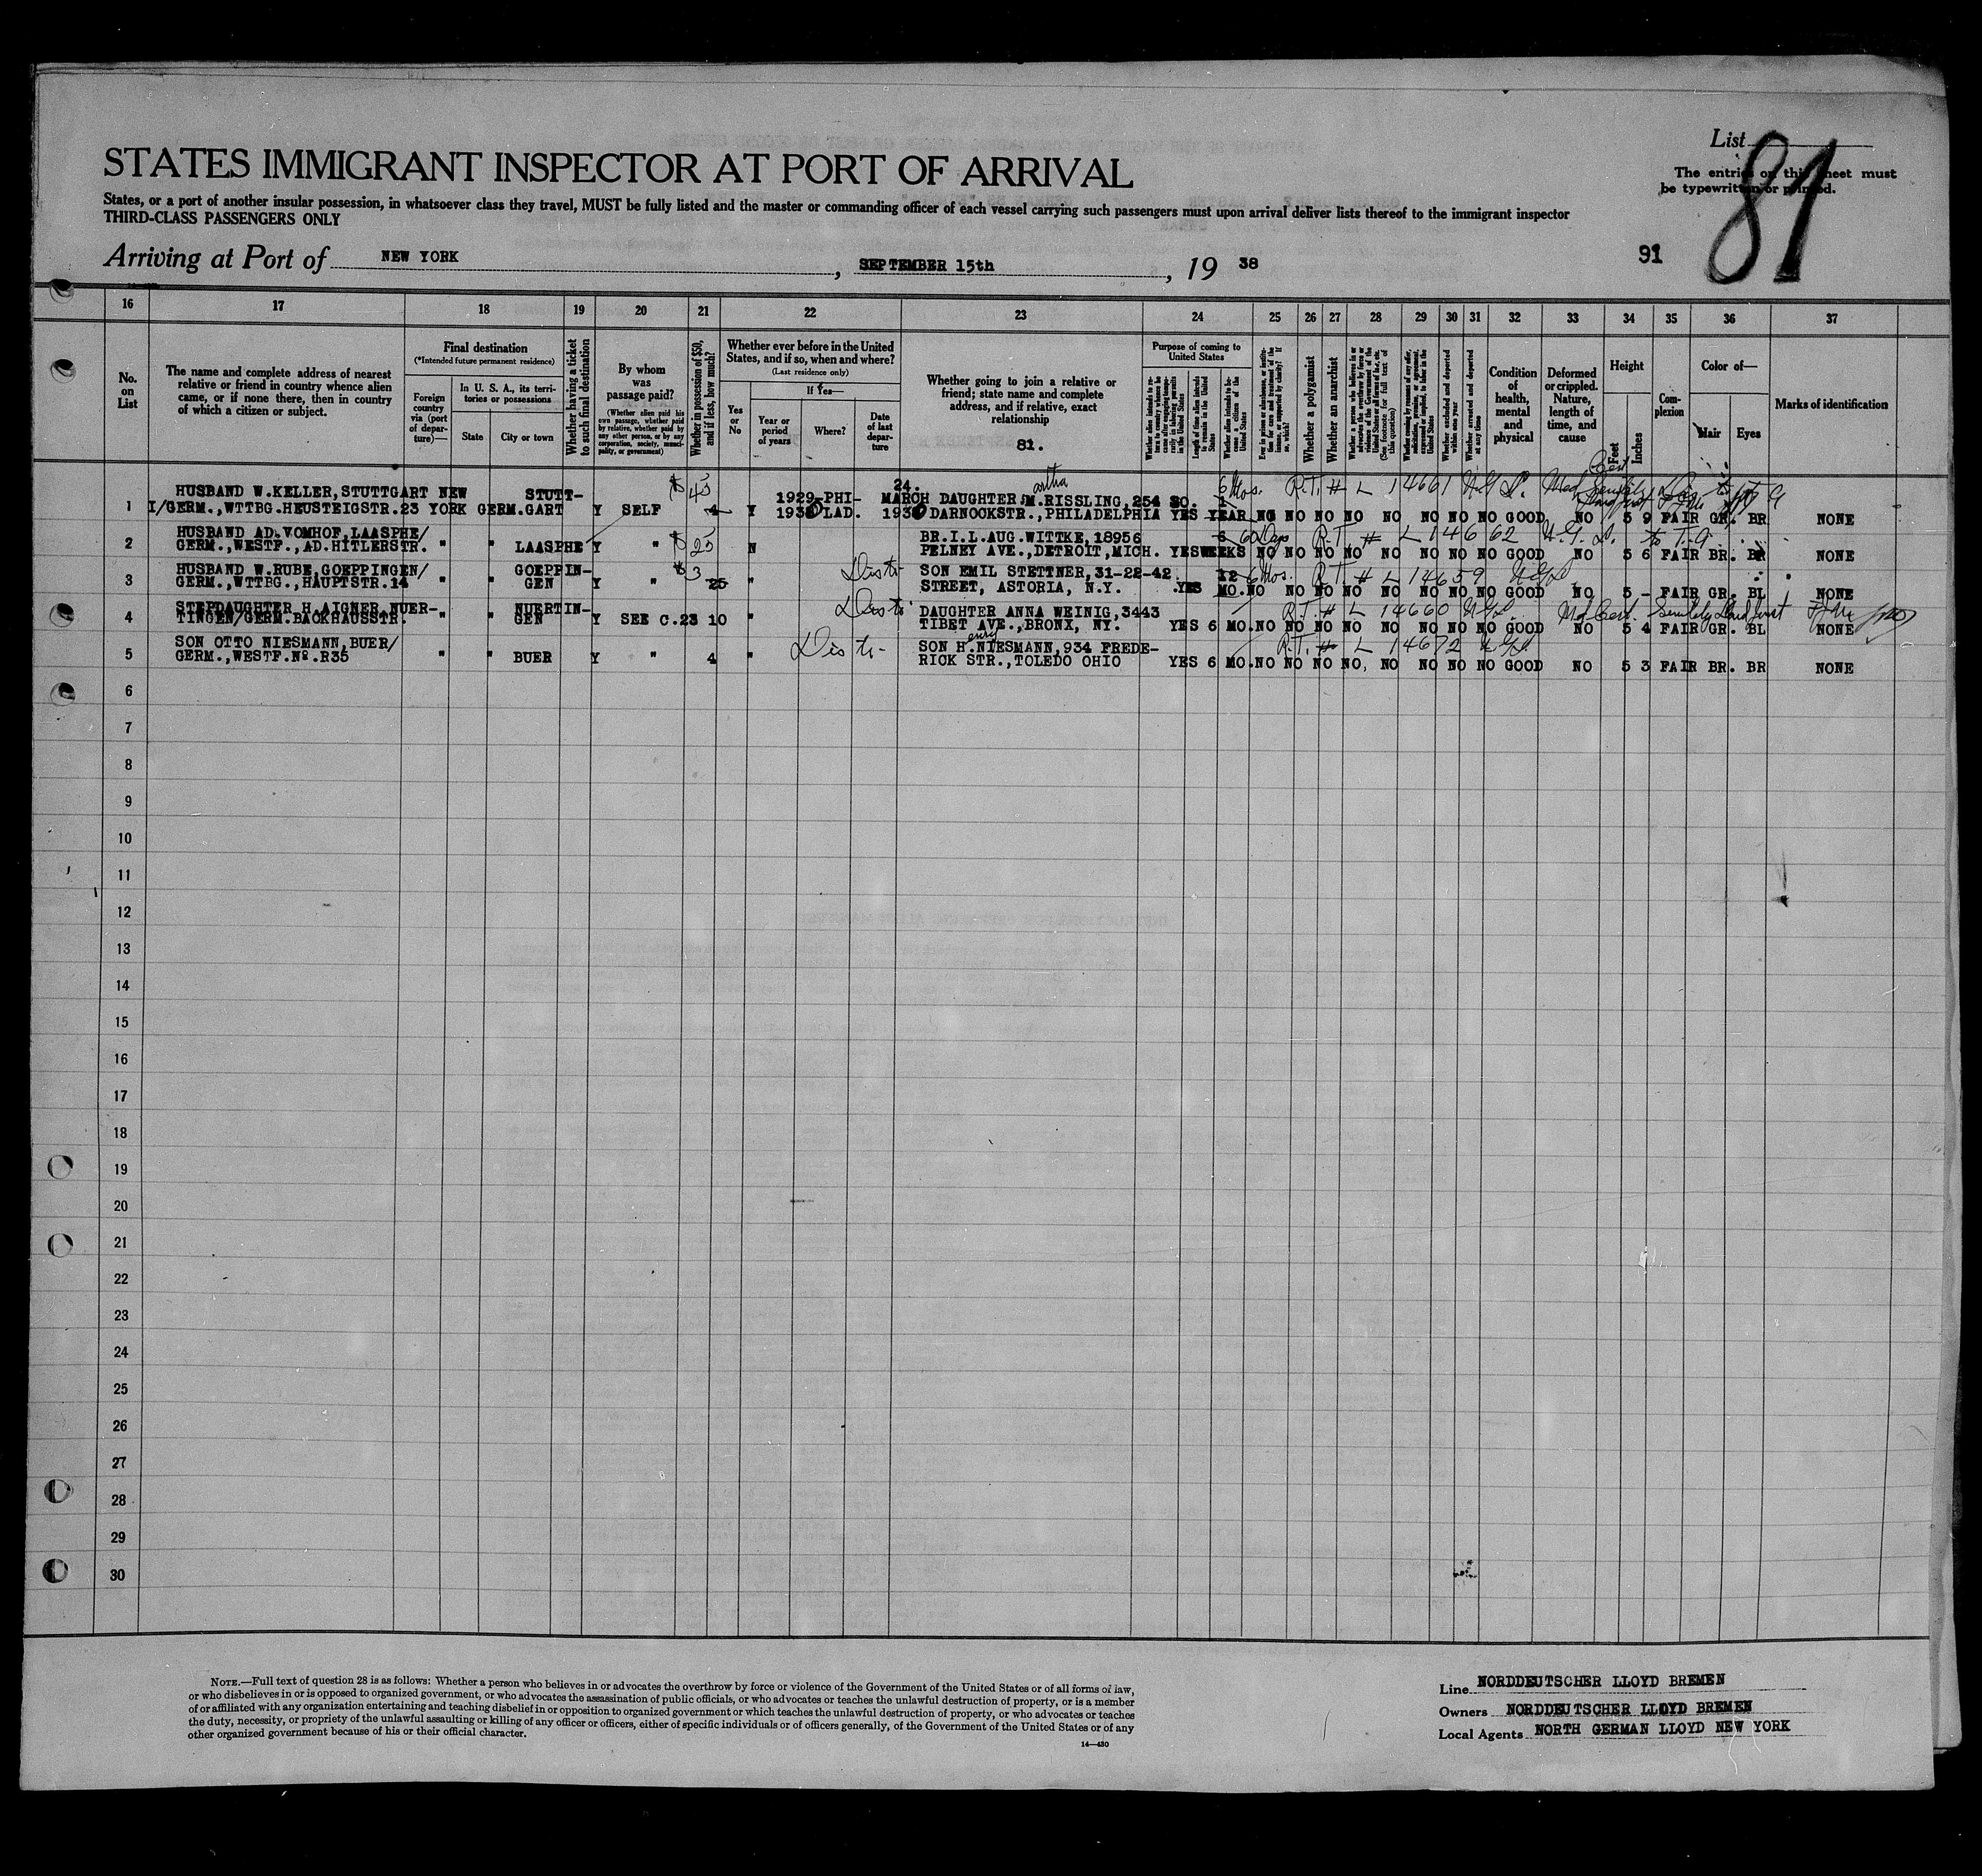 List
81
STATES IMMIGRANT INSPECTOR AT PORT OF ARRIVAL
The entries on this sheet must
be typewritten or printed.
States, or a port of another insular possession, in whatsoever class they travel, MUST be fully listed and the master or commanding officer of each vessel carrying such passengers must upon arrival deliver lists thereof to the immigrant inspector
THIRD-CLASS PASSENGERS ONLY
Arriving at Port of NEW YORK, SEPTEMBER 15th, 19 38
91
16 17 18 19 20 21 22 23 24 25 26 27 28 29 30 31 32 33 34 35 36 37
No. on List
The name and complete address of nearest
relative or friend in country whence alien
came, or if none there, then in country
of which a citizen or subject.
Final destination
(*Intended future permanent residence)
Foreign country via (port of departure)—
In U. S. A., its territories or possessions
State
City or town
Whether having a ticket to such final destination
By whom was passage paid?
(Whether alien paid his own passage, whether paid by relative, whether paid by any other person, or by any corporation, society, municipality, or government)
Whether in possession of $50, and if less, how much?
Whether ever before in the United
States, and if so, when and where?
(Last residence only)
Yes or No
If Yes—
Year or period of years
Where?
Date of last departure
Whether going to join a relative or
friend; state name and complete
address, and if relative, exact
relationship
81.
Purpose of coming to United States
Whether a polygamist
Whether an anarchist
Condition of health, mental and physical
Deformed or crippled. Nature, length of time, and cause
Height
Feet
Inches
Complexion
Color of—
Hair
Eyes
Marks of identification
HUSBAND W.KELLER,STUTTGART NEW STUTT- $ 45 24. artha 6 Mos. R.T. # L 14661
1 I/GERM.,WTTBG.HEUSTEIGSTR.23 YORK GERM.GART Y SELF 4 Y 1929-PHI- MARCH DAUGHTER M.RISSLING,254 SO. 1
1930 LAD. 1930 DARNOOKSTR.,PHILADELPHIA YES YEAR NO NO NO NO NO NO NO NO GOOD NO 5 9 FAIR GR. BR NONE
HUSBAND AD.VOMHOF,LAASPHE/ $ 25 BR.I.L.AUG.WITTKE,18956 6 60 Days R.T. # L 14662
2 GERM.,WESTF.,AD.HITLERSTR. " " LAASPHE Y " N PELNEY AVE.,DETROIT,MICH. YES WEEKS NO NO NO NO NO NO NO NO GOOD NO 5 6 FAIR BR. BR NONE
HUSBAND W.RUBE,GOEPPINGEN/ GOEPPIN- $3 SON EMIL STETTNER,31-22-42 12 6 Mos. R.T. # L 14659
3 GERM.,WTTBG.,HAUPTSTR.14 " " GEN Y " 25 " STREET, ASTORIA, N.Y. YES MO. NO NO NO NO NO NO NO NO GOOD NO 5 - FAIR GR. BL NONE
STEPDAUGHTER H.AIGNER,NUER- NUERTIN- DAUGHTER ANNA WEINIG,3443 R.T. # L 14660
4 TINGEN/GERM.BACKHAUSSTR. " " GEN Y SEE C.23 10 " TIBET AVE.,BRONX, NY. YES 6 MO. NO NO NO NO NO NO NO NO GOOD NO 5 4 FAIR GR. BL NONE
SON OTTO NIESMANN,BUER/ enry SON H.NIESMANN,934 FREDE- R.T. # L 14672
5 GERM.,WESTF.Nº.R35 " " BUER Y " 4 " RICK STR.,TOLEDO OHIO YES 6 MO. NO NO NO NO, NO NO NO NO GOOD NO 5 3 FAIR BR. BR NONE
6
7
8
9
10
11
12
13
14
15
16
17
18
19
20
21
22
23
24
25
26
27
28
29
30
NOTE.—Full text of question 28 is as follows: Whether a person who believes in or advocates the overthrow by force or violence of the Government of the United States or of all forms of law,
or who disbelieves in or is opposed to organized government, or who advocates the assassination of public officials, or who advocates or teaches the unlawful destruction of property, or is a member
of or affiliated with any organization entertaining and teaching disbelief in or opposition to organized government or which teaches the unlawful destruction of property, or who advocates or teaches
the duty, necessity, or propriety of the unlawful assaulting or killing of any officer or officers, either of specific individuals or of officers generally, of the Government of the United States or of any
other organized government because of his or their official character.
14—430
Line NORDDEUTSCHER LLOYD BREMEN
Owners NORDDEUTSCHER LLOYD BREMEN
Local Agents NORTH GERMAN LLOYD NEW YORK